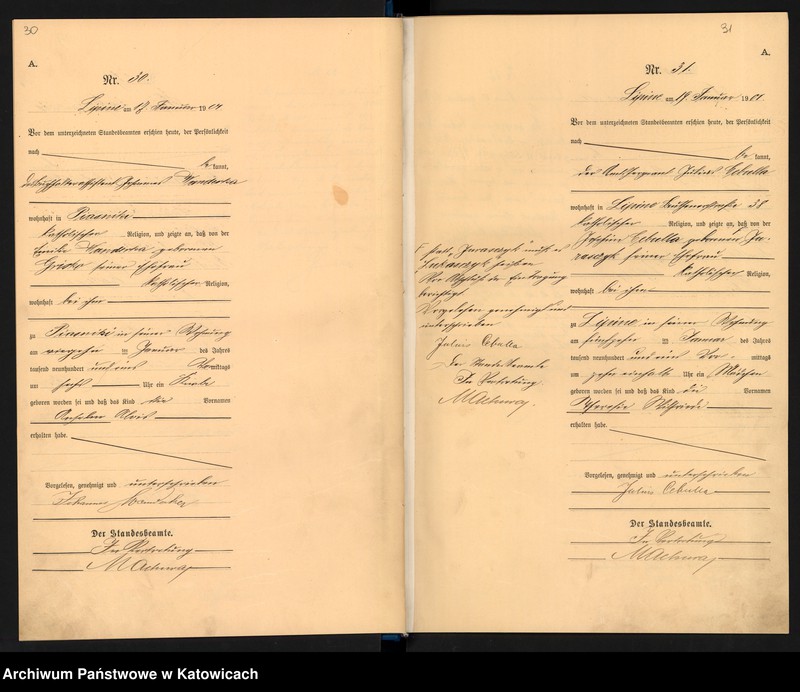 30
A.
Nr. 30.
Lipine am 17. Januar 1901
Vor dem unterzeichneten Standesbeamten erschien heute, der Persönlichkeit
nach
be kannt,
der
wohnhaft in
katholischer Religion, und zeigte an, daß von der
geborenen
seiner Ehefrau
katholischer Religion,
wohnhaft bei ihm
zu in seiner Wohnung
am vierzehn ten Januar des Jahres
tausend neunhundert und eins Vormittags
um sechs Uhr ein Knabe
geboren worden sei und daß das Kind die Vornamen
Alois
erhalten habe.
Vorgelesen, genehmigt und unterschrieben
Johannes
Der Standesbeamte.
In Vertretung
Machura
31
A.
Nr. 31.
Lipine am 17. Januar 1901.
Vor dem unterzeichneten Standesbeamten erschien heute, der Persönlichkeit
nach
be kannt,
der Julius Cebulla
wohnhaft in Lipine 38
katholischer Religion, und zeigte an, daß von der
Cebulla geborenen
seiner Ehefrau
katholischer Religion,
wohnhaft bei ihm
zu Lipine in seiner Wohnung
am fünfzehn ten Januar des Jahres
tausend neunhundert und eins Vor mittags
um zehn einhalb Uhr ein Mädchen
geboren worden sei und daß das Kind die Vornamen
erhalten habe.
Vorgelesen, genehmigt und unterschrieben
Julius Cebulla
Der Standesbeamte.
In Vertretung
Machura
muß es
heißen
vor Abschluß der Eintragung
berichtigt
Vorgelesen genehmigt und
unterschrieben
Julius Cebulla
Der Standesbeamte
In Vertretung
Machura.
Archiwum Państwowe w Katowicach